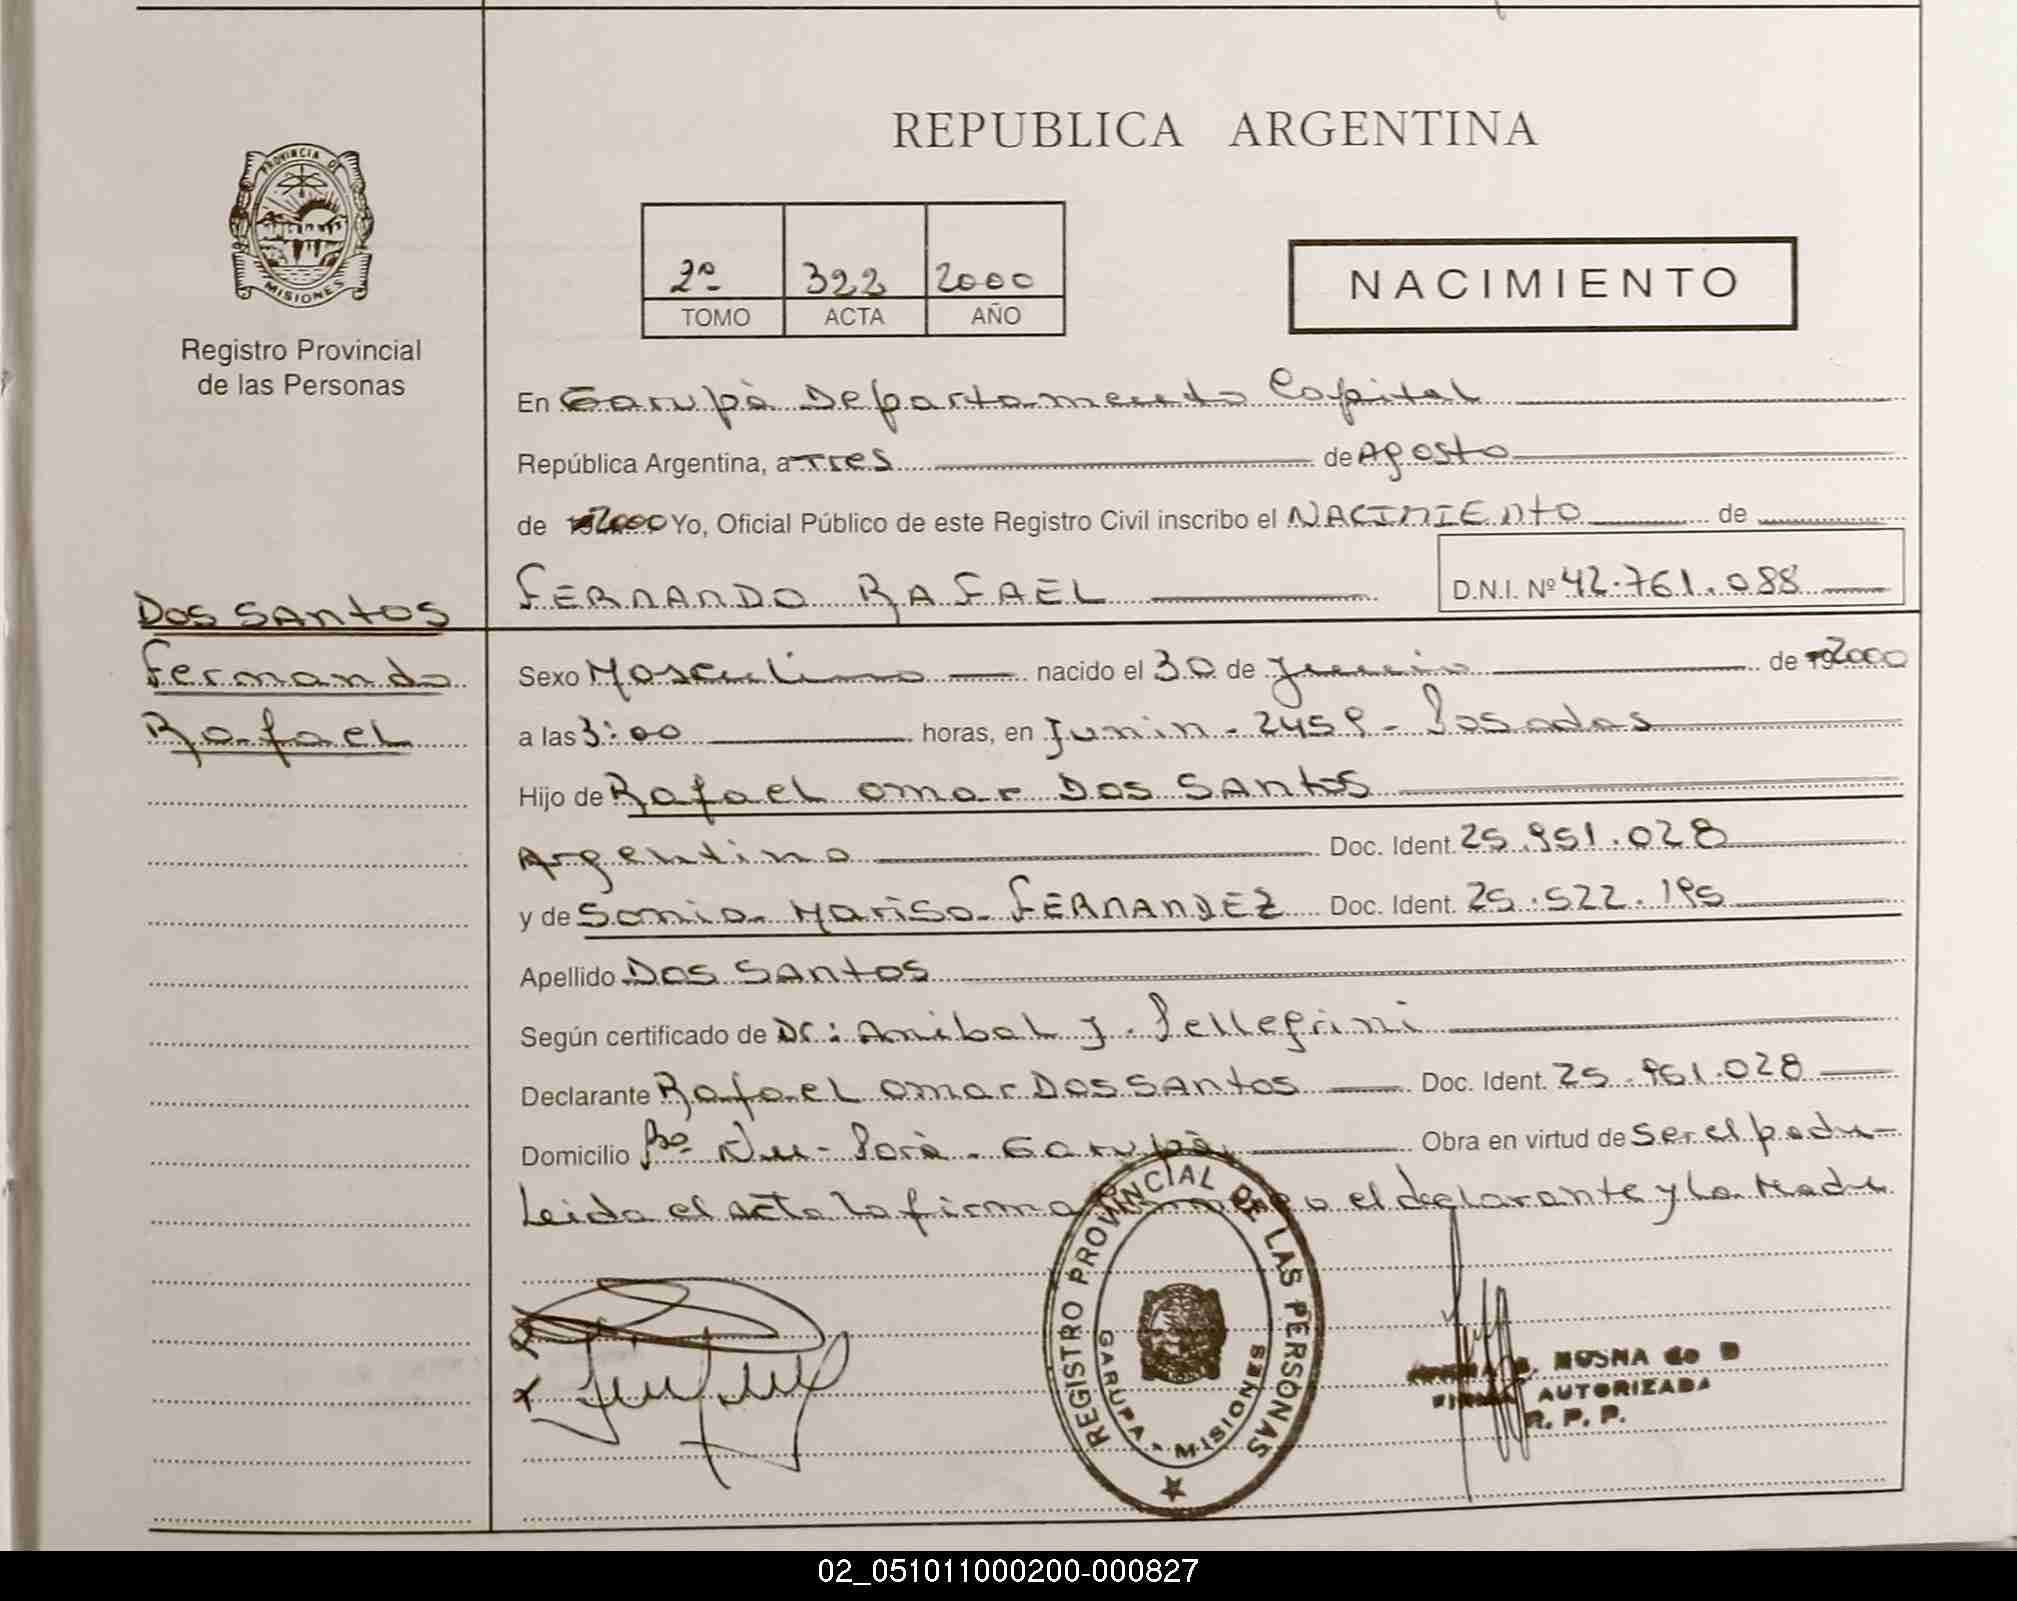 REPUBLICA ARGENTINA
PROVINCIA DE
MISIONES
Registro Provincial
de las Personas
2º 322 2000
TOMO ACTA AÑO
NACIMIENTO
En Garupà Departamento Capital
República Argentina, a Tres de Agosto
de 2000 Yo, Oficial Público de este Registro Civil inscribo el NACIMIENTO de
FERNANDO RAFAEL D.N.I. Nº 42.761.088
DOS SANTOS
Fernando
Rafael
Sexo Masculino nacido el 30 de Junio de 2000
a las 3:00 horas, en Junin - 2459 - Posadas
Hijo de Rafael Omar DOS SANTOS
Argentino Doc. Ident. 25.951.028
y de Sonia Marisa FERNANDEZ Doc. Ident. 25.522.195
Apellido DOS SANTOS
Según certificado de Dr: Anibal J. Pellegrini
Declarante Rafael Omar DOS SANTOS Doc. Ident. 25.951.028
Domicilio Bº Ñu-Porà - Garupà Obra en virtud de Ser el padre
Leida el acta la firma el declarante y la Madre
REGISTRO PROVINCIAL DE LAS PERSONAS
GARUPA - MISIONES
MOSNA de D
FIRMA AUTORIZADA
R. P. P.
02_051011000200-000827